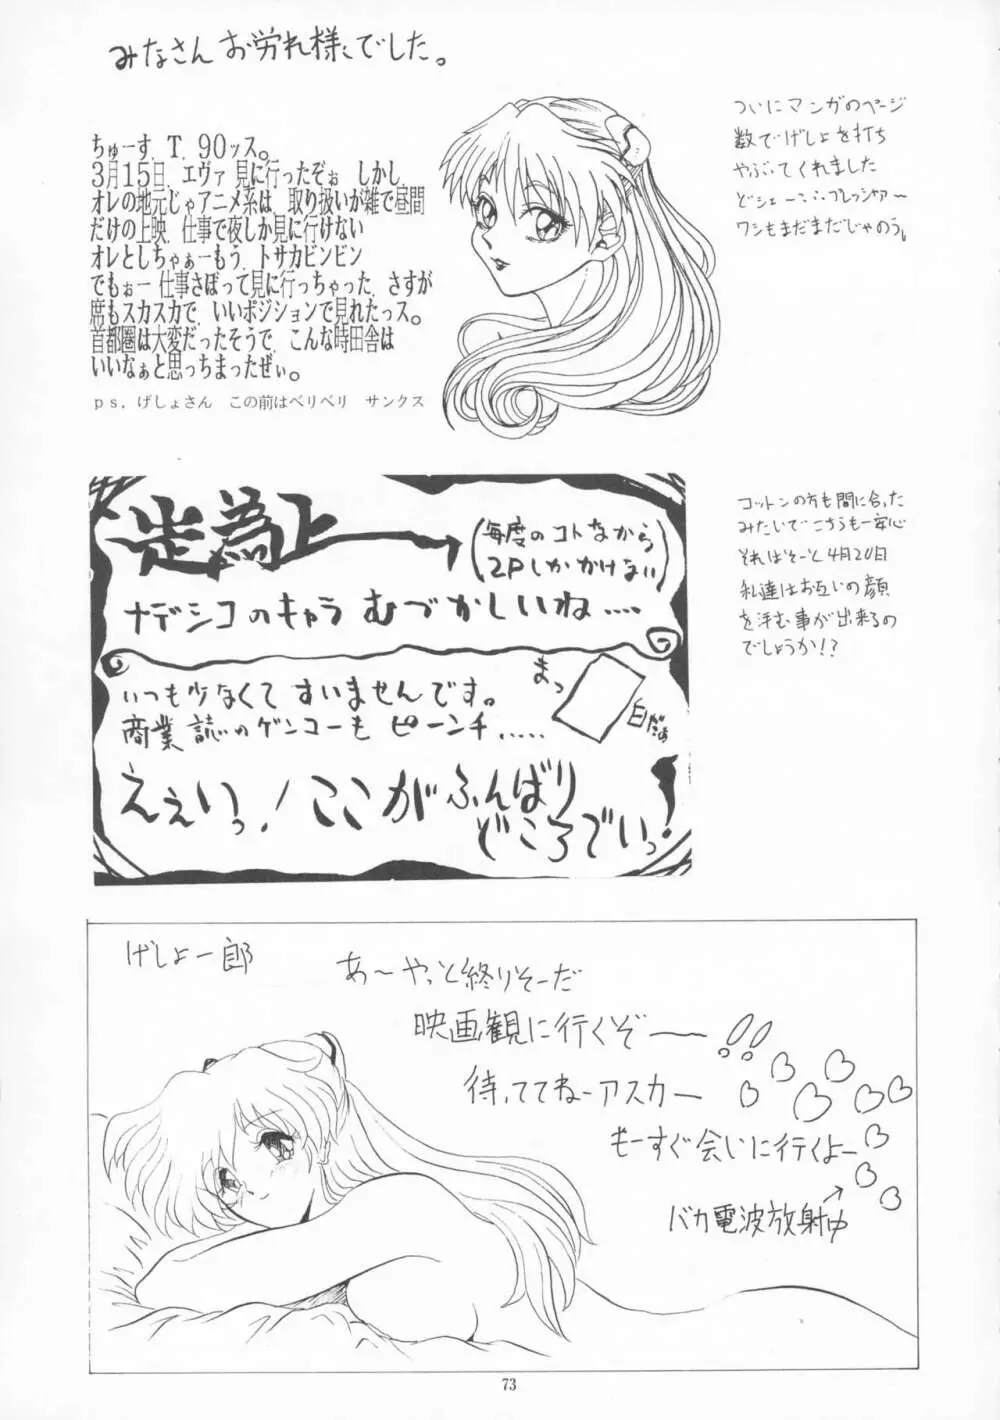 みなさんお労れ様でした。
ちゅーす、T．90ッス。
3月15日、エヴァ見に行ったぞぉ しかし、
オレの地元じゃアニメ系は、取り扱いが雑で昼間
だけの上映、仕事で夜しか見に行けない
オレとしちゃぁーもう、トサカビンビン
でもぉー仕事さぼって見に行っちゃった、さすが
席もスカスカで、いいポジションで見れたっス。
首都圏は大変だったそうで、こんな時田舎は
いいなぁと思っちまったぜぃ。
ps．げしょさん この前はベリベリ サンクス
ついにマンガのページ
数でげしょを打ち
やぶってくれました
どシェー∴∴プレッシャァ〜
ワシもまだまだじゃのう。
走為上
(毎度のコトながら
2Pしかかけない)
ナデシコのキャラ むづかしいね‥‥
いつも少なくて すいませんです。
商業誌のゲンコーも ピーンチ‥‥‥
まっ
白だぁ
えぇいっ！ここがふんばり
どころでいっ！
コットンの方も間に合った
みたいでこちらも一安心
それはそーと4月20日
私達はお互いの顔
を拝む事が出来るの
でしょうか!?
げしょ一郎
あ〜やっと終りそーだ
映画観に行くぞ――!!
待っててねーアスカー
もーすぐ会いに行くよー
バカ電波放射中
73